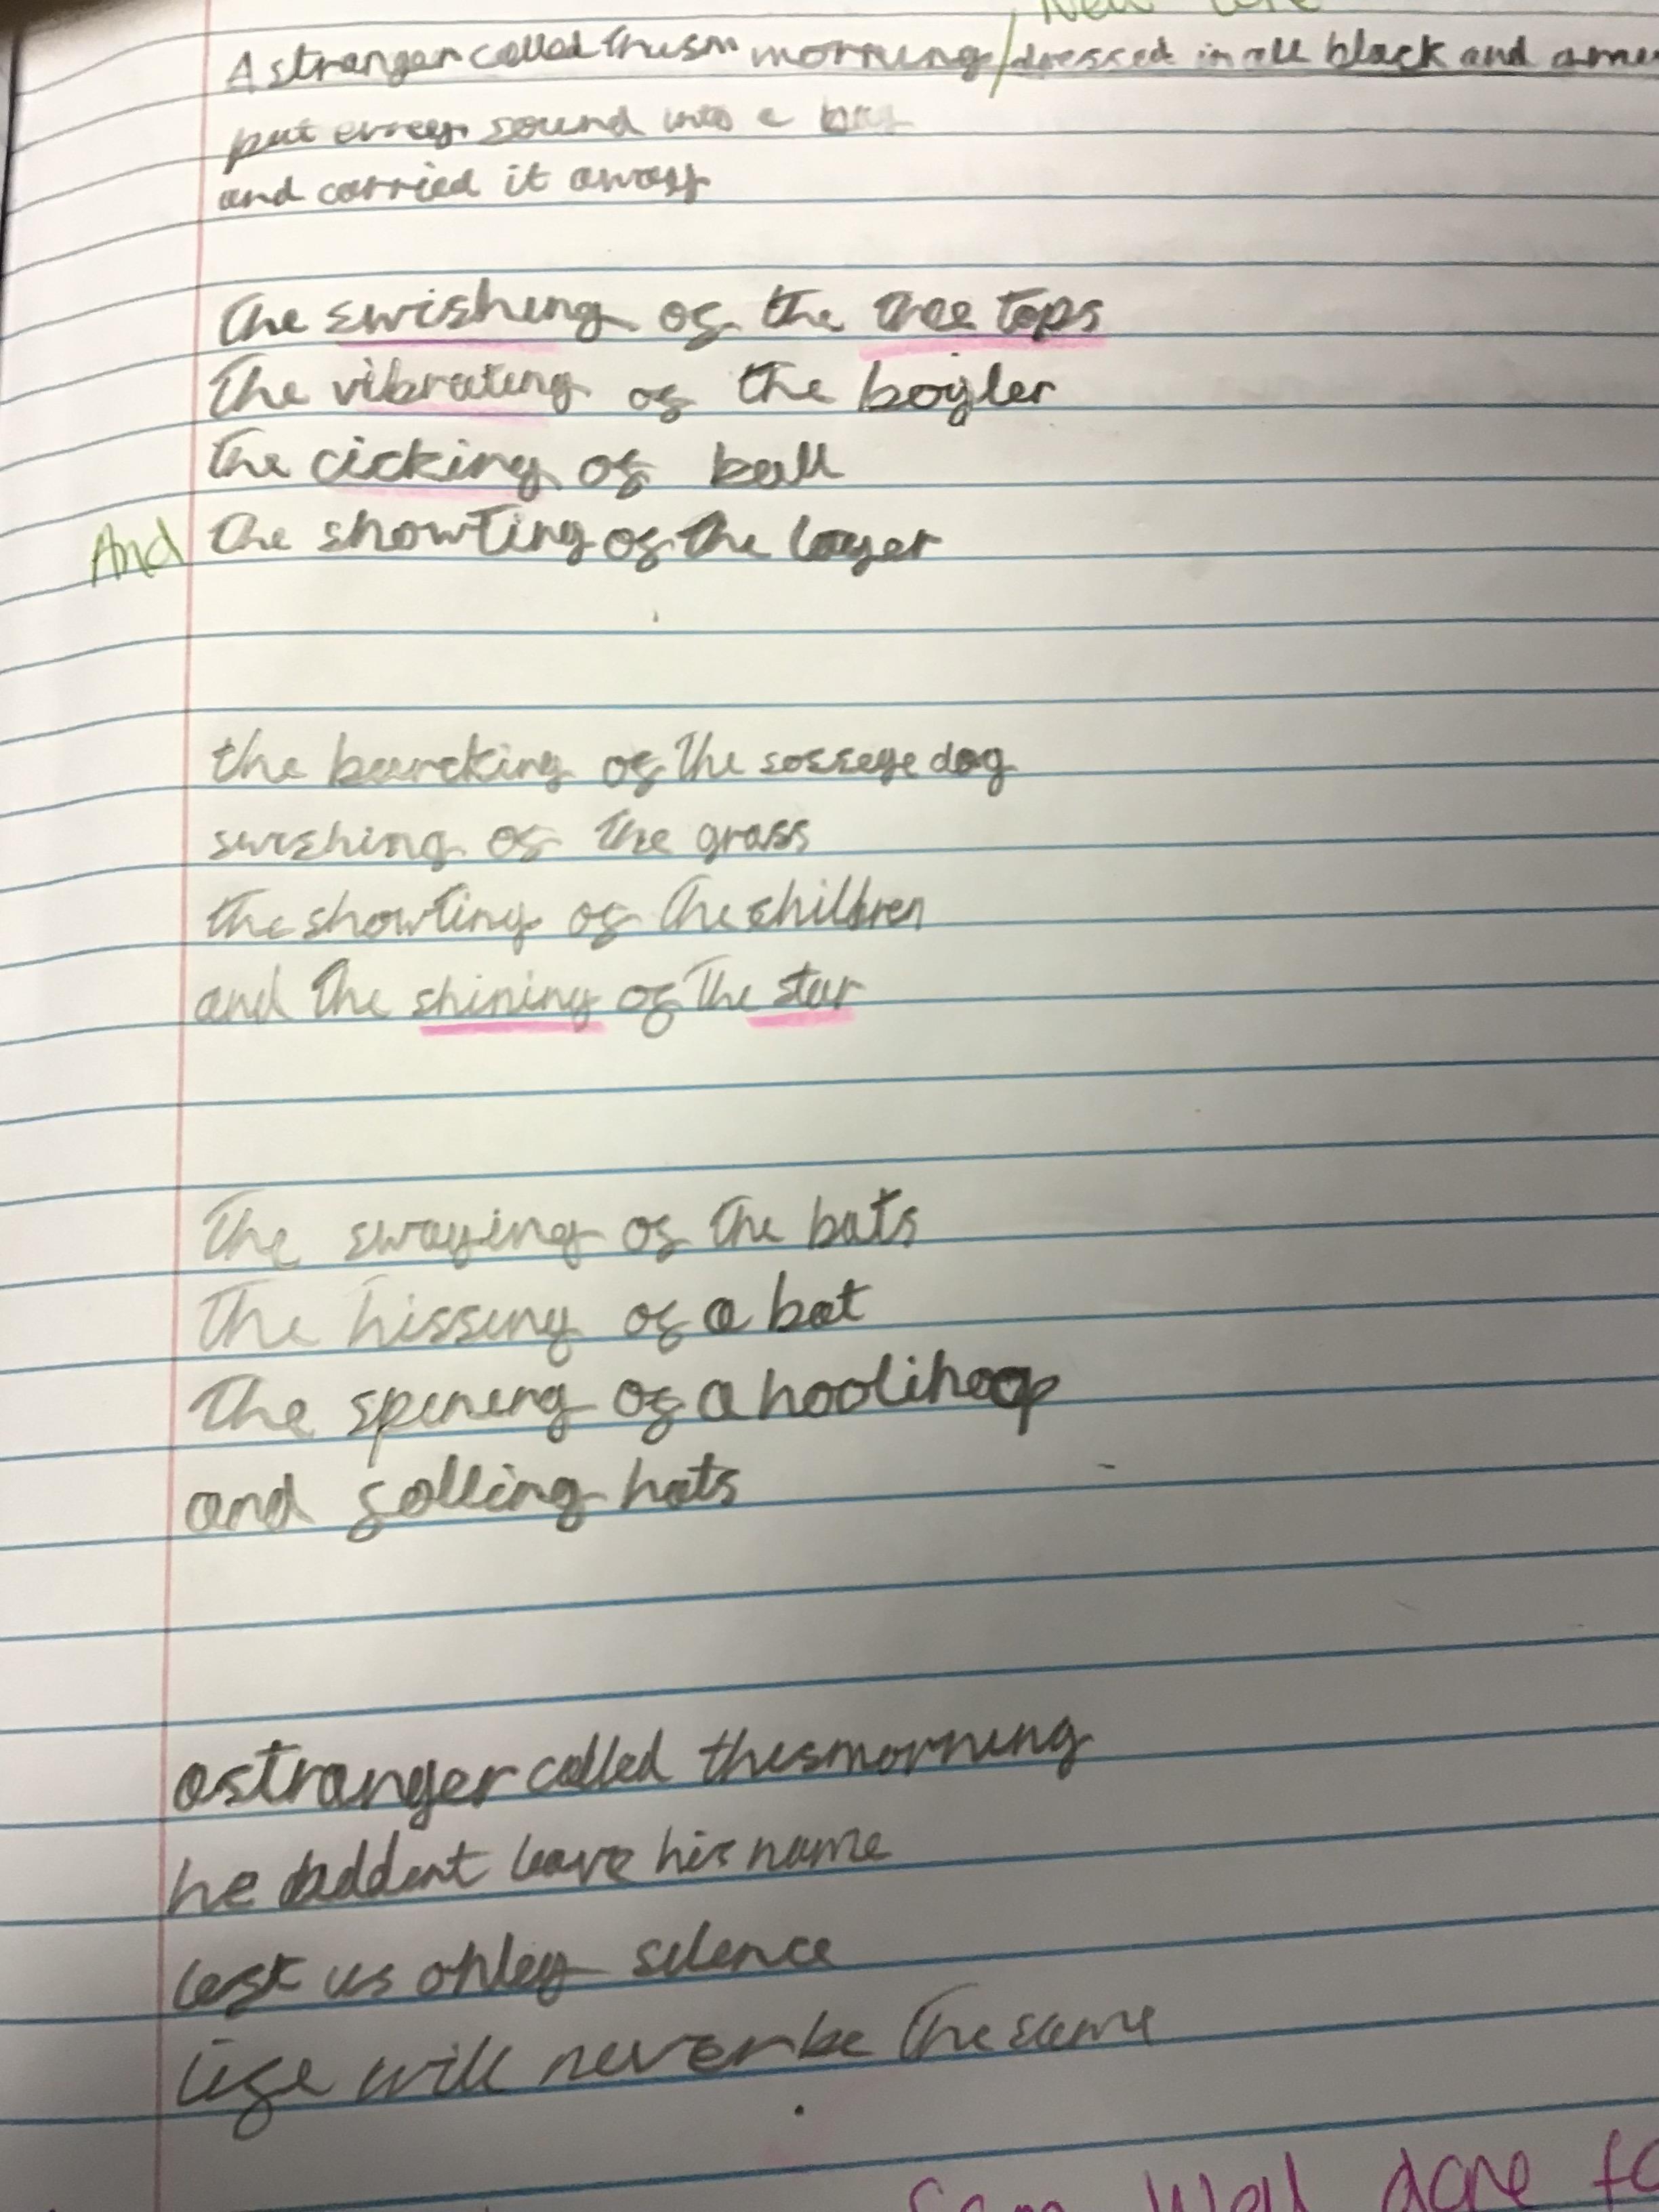 New line
A stranger called thism morning/dressed in all black and
put every sound into a bag
and carried it away
The swishing of the tree tops
The vibrating of the boyler
the cicking of ball
And the showting of the layer
the barcking of the sossege dog
swishing of the grass
the showting of the children
and the shining of the star
The swaying of the bats
The hissing of a bat
The spining of a hoolihoop
and folling hats
a stranger called this morning
he diddent leave his name
left us onley silence
life will never be the same
Sam Well done